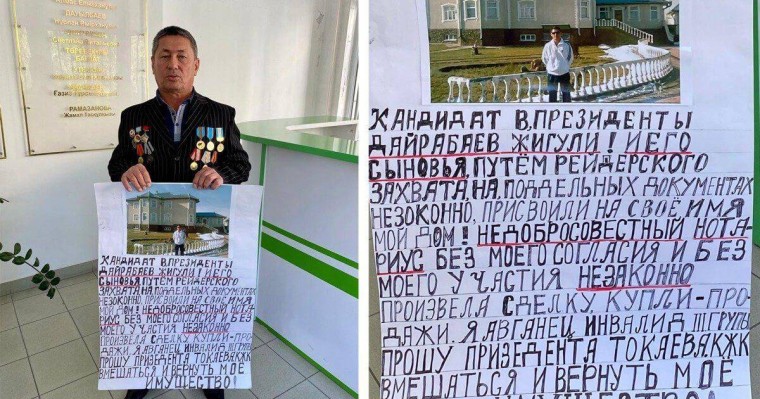 РАМАЗАНОВА
КАНДИДАТ В,ПРЕЗИДЕНТЫ
ДАЙРАБАЕВ ЖИГУЛИ! И ЕГО
СЫНОВЬЯ,ПУТЁМ РЕЙДЕРСКОГО
ЗАХВАТА НА, ПОДДЕЛЬНЫХ ДОКУМЕНТАХ
НЕЗОКОННО, ПРИСВОИЛИ НА СВОЁ, ИМЯ
МОЙ ДОМ! НЕДОБРОСОВЕСТНЫЙ НОТА-
РИУС БЕЗ МОЕГО СОГЛАСИЯ И БЕЗ
МОЕГО УЧАСТИЯ НЕЗАКОННО
ПРОИЗВЕЛА СДЕЛКУ КУПЛИ-ПРО-
ДАЖИ. Я АВГАНЕЦ ИНВАЛИД III ГРУПЫ
ПРОШУ ПРИЗЕДЕНТА ТОКАЕВА К,Ж,К
ВМЕШАТЬСЯ И ВЕРНУТЬ МОЁ
ИМУЩЕСТВО!
КАНДИДАТ В,ПРЕЗИДЕНТЫ
ДАЙРАБАЕВ ЖИГУЛИ! И ЕГО
СЫНОВЬЯ,ПУТЁМ РЕЙДЕРСКОГО
ЗАХВАТА НА, ПОДДЕЛЬНЫХ ДОКУМЕНТАХ
НЕЗОКОННО, ПРИСВОИЛИ НА СВОЁ, ИМЯ
МОЙ ДОМ! НЕДОБРОСОВЕСТНЫЙ НОТА-
РИУС БЕЗ МОЕГО СОГЛАСИЯ И БЕЗ
МОЕГО УЧАСТИЯ НЕЗАКОННО
ПРОИЗВЕЛА СДЕЛКУ КУПЛИ-ПРО-
ДАЖИ. Я АВГАНЕЦ ИНВАЛИД III ГРУПЫ
ПРОШУ ПРИЗЕДЕНТА ТОКАЕВА К,Ж,К
ВМЕШАТЬСЯ И ВЕРНУТЬ МОЁ
ИМУЩЕСТВО!